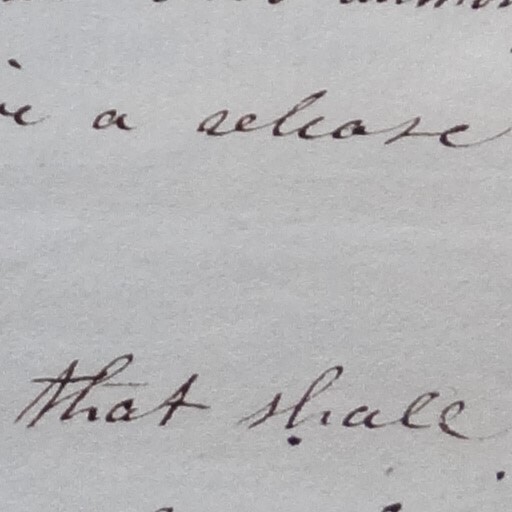 a release
that shall